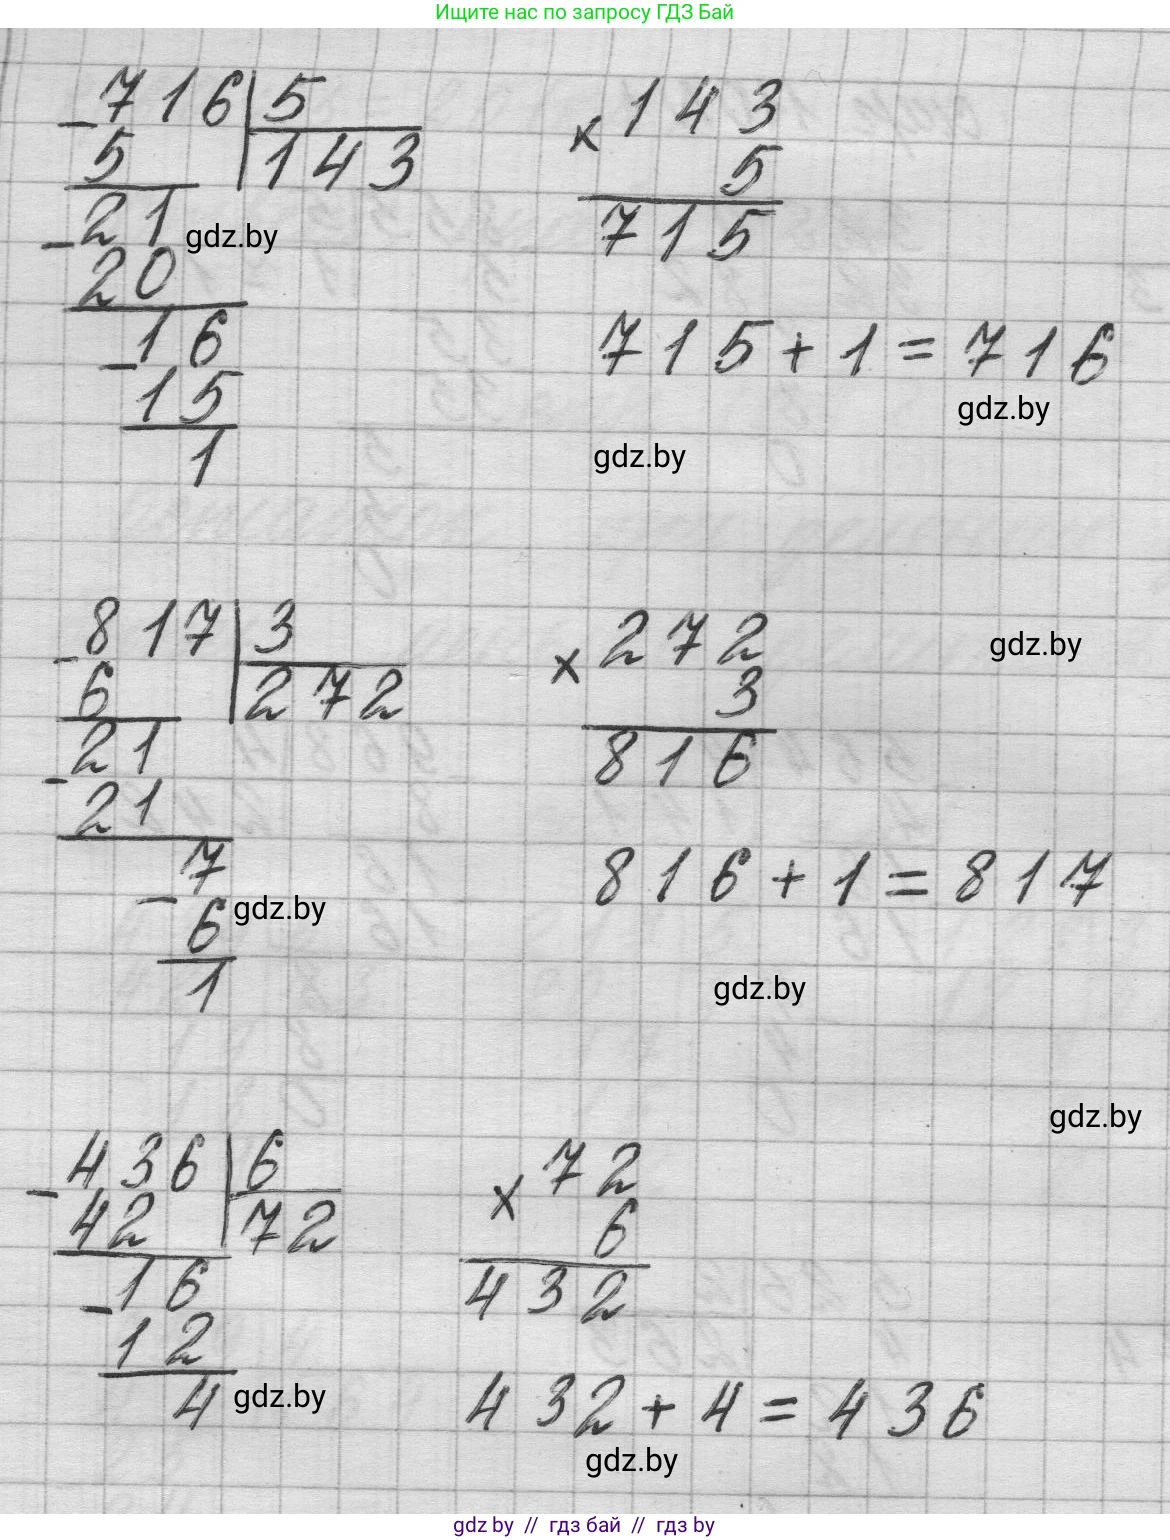 Ищите нас по запросу ГДЗ Бай
- 716 | 5
5 | 143
- 21
20
- 16
15
1
gdz.by
× 143
5
715
715 + 1 = 716
gdz.by
gdz.by
- 817 | 3
6 | 272
- 21
21
- 7
6
1
gdz.by
× 272
3
816
gdz.by
816 + 1 = 817
gdz.by
gdz.by
- 436 | 6
42 | 72
- 16
12
4
gdz.by
× 72
6
432
432 + 4 = 436
gdz.by
gdz by // гдз бай // gdz by